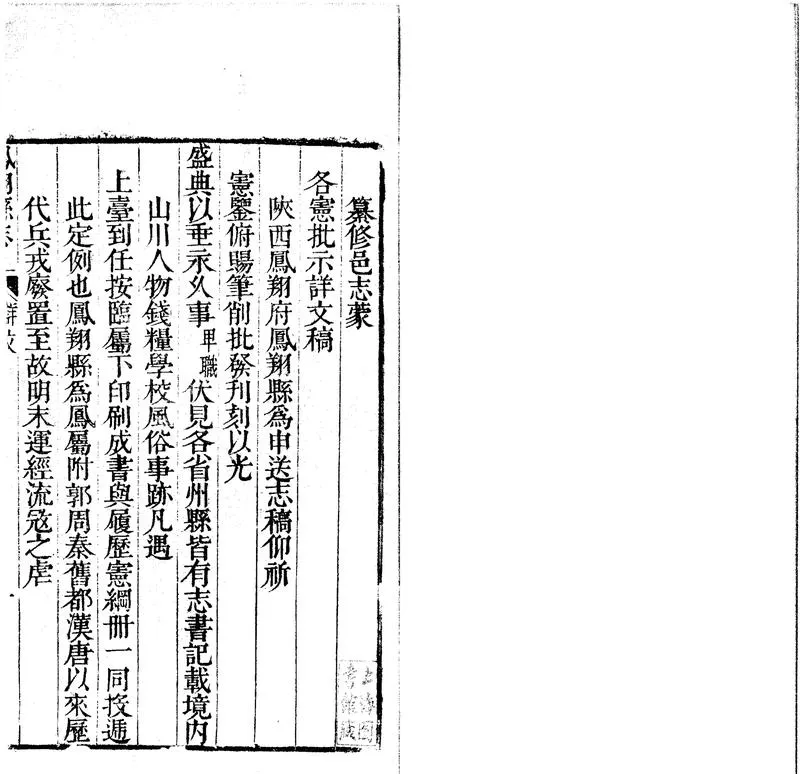 纂修邑志蒙
各憲批示詳文稿
陝西鳳翔府鳳翔縣為申送志稿仰祈
憲鑒俯賜筆削批發刋刻以光
盛典以垂示久事卑職伏見各省州縣皆有志書記載境內
山川人物錢糧學校風俗事跡凡遇
上臺到任按臨屬下印刷成書與履歷憲綱冊一同投遞
此定例也鳳翔縣為鳳屬附郭周秦舊都漢唐以來歷
代兵戎廢置至故明末運經流寇之虐
鳳翔縣志
上海圖
書館藏